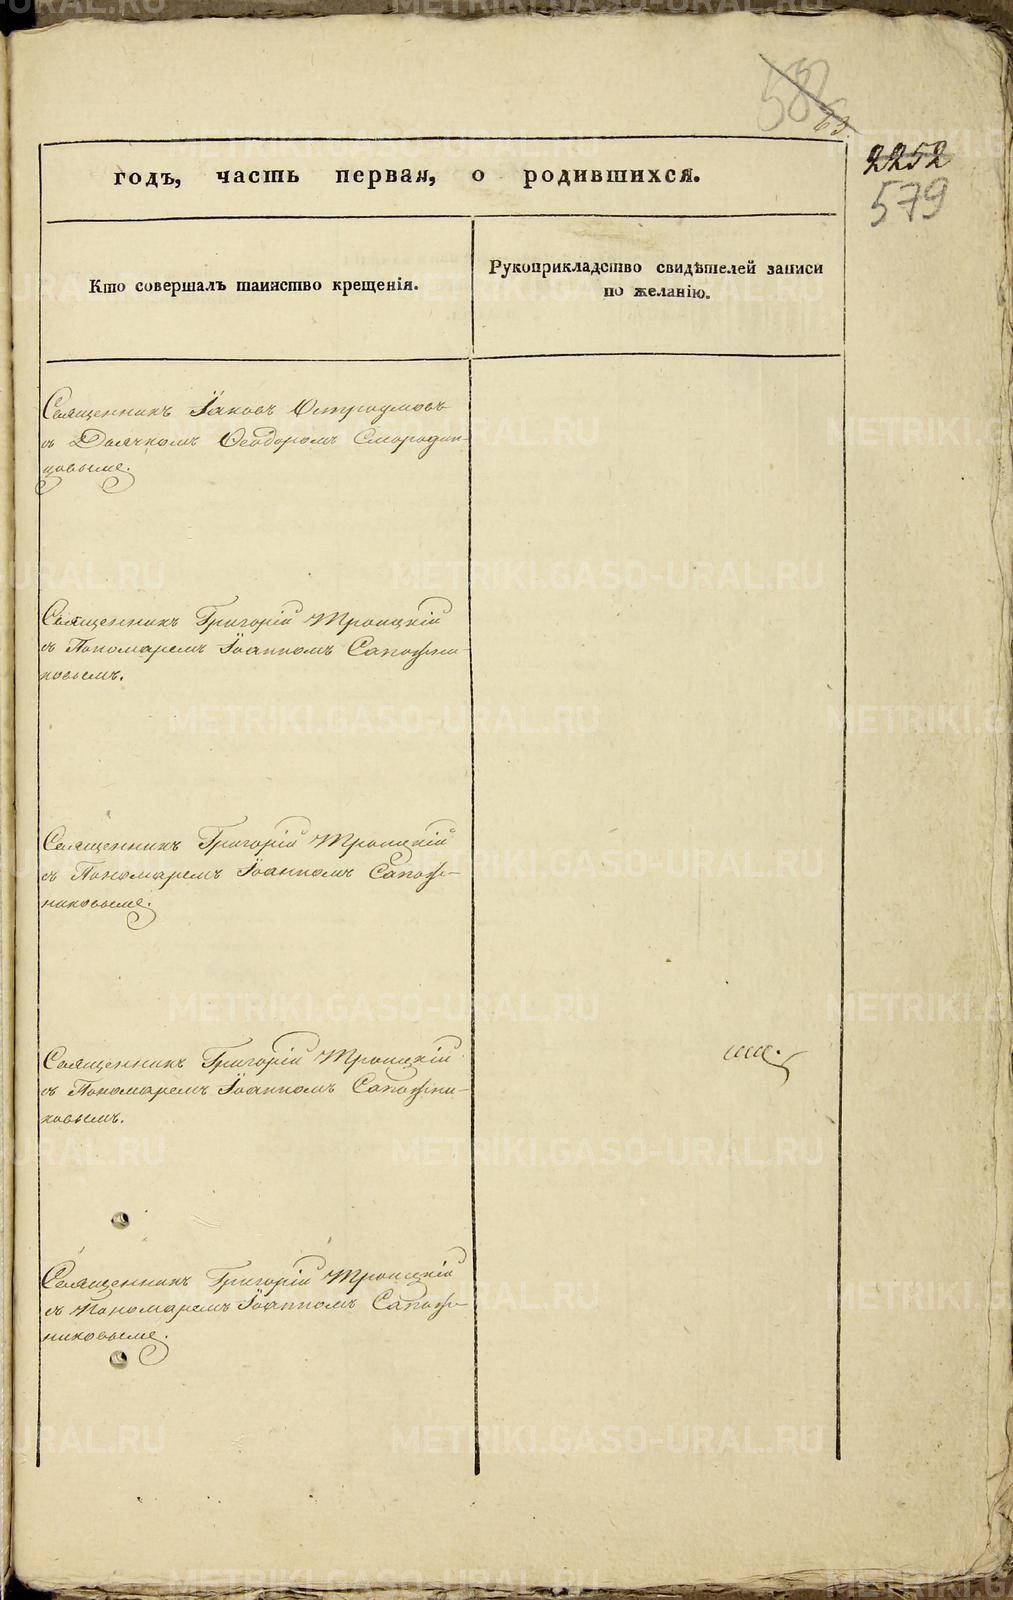 582
63.
2252
579
годъ, часть первая, о родившихся.
Кто совершалъ таинство крещенія.
Рукоприкладство свидѣтелей записи
по желанію.
Священникъ Іаковъ Остроумовъ
съ Дьячкомъ Ѳеодоромъ Смородин-
цовымъ.
Священникъ Григорій Троицкій
съ Пономаремъ Іоанномъ Сапожни-
ковымъ.
Священникъ Григорій Троицкій
съ Пономаремъ Іоанномъ Сапож-
никовымъ.
Священникъ Григорій Троицкій
съ Пономаремъ Іоанномъ Сапожни-
ковымъ.
Священникъ Григорій Троицкій
съ Пономаремъ Іоанномъ Сапож-
никовымъ.
METRIKI.GASO-URAL.RU